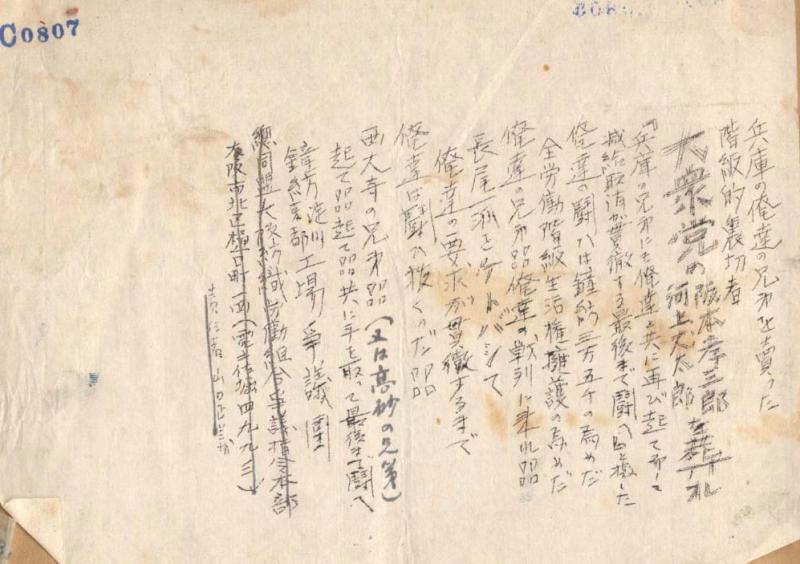 C0807
兵庫の俺達の兄弟を賣った
階級的裏切者
大衆党の阪本孝三郎
河上丈太郎を葬れ
『兵庫の兄弟にも俺達と共に再び起て而して
減給取消が貫徹する最後まで闘へ と檄した
俺達の闘ひは鐘紡三万五千の為めだ
全労働階級生活権擁護の為めだ
俺達の兄弟 俺達の戦列に来れ
長尾 を
俺達の要求が貫徹するまで
俺達は闘ひ抜くのだ
西大寺の兄弟(又は高砂の兄弟)
起て 起て 共に手を取って最後まで闘へ
鐘紡淀川工場爭議團
鐘紡 部
総同盟大阪紡織労働組合爭議指令本部
大阪市北区 町 (電 四九九三)
責任者 山口